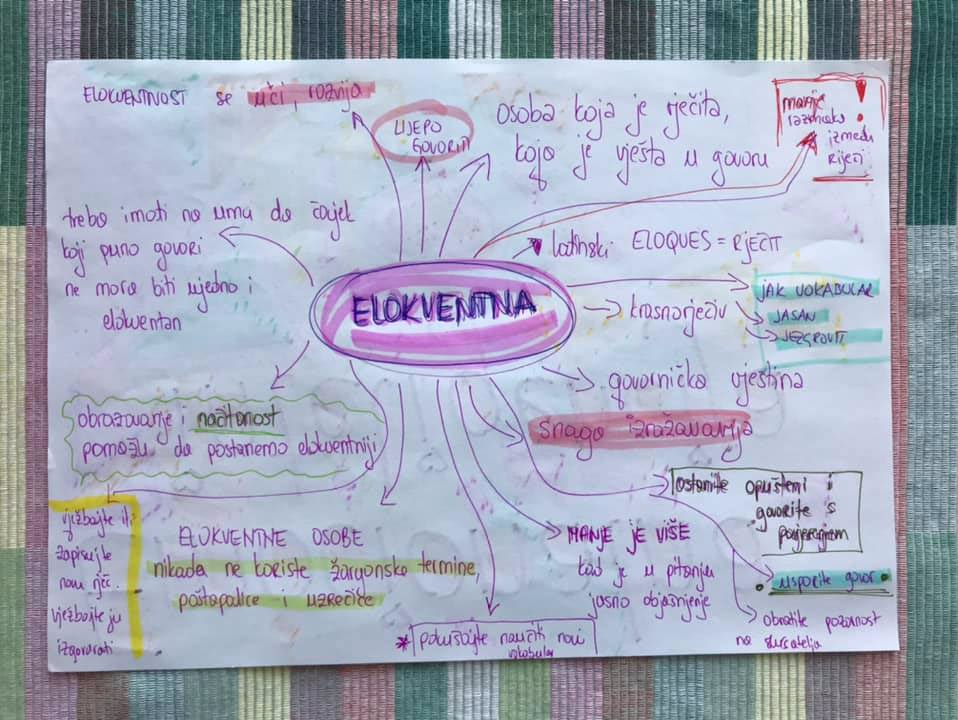 ELOKVENTNOST se uči, razvija
LIJEPO
GOVORITI
osoba koja je rječita,
koja je vješta u govoru
manje
razmaka
između
riječi
!
treba imati na umu da čovjek
koji puno govori
ne mora biti ujedno i
elokventan
latinski ELOQUES = RJEČIT
ELOKVENTNA
krasnorječiv
JAK VOKABULAR
JASAN
JEZGROVIT
govornička vještina
snaga izražavanja
obrazovanje i načitanost
pomažu da postanemo elokventniji
ostanite opušteni i
govorite s
povjerenjem
vježbajte ili
zapisujte
novu riječ.
vježbajte ju
izgovarati
ELOKVENTNE OSOBE
nikada ne koriste žargonske termine,
poštapalice i uzrečice
MANJE JE VIŠE
kad je u pitanju
jasno objašnjenje
usporite govor
obratite pozornost
na slušatelja
* pokušajte naučiti novi
vokabular